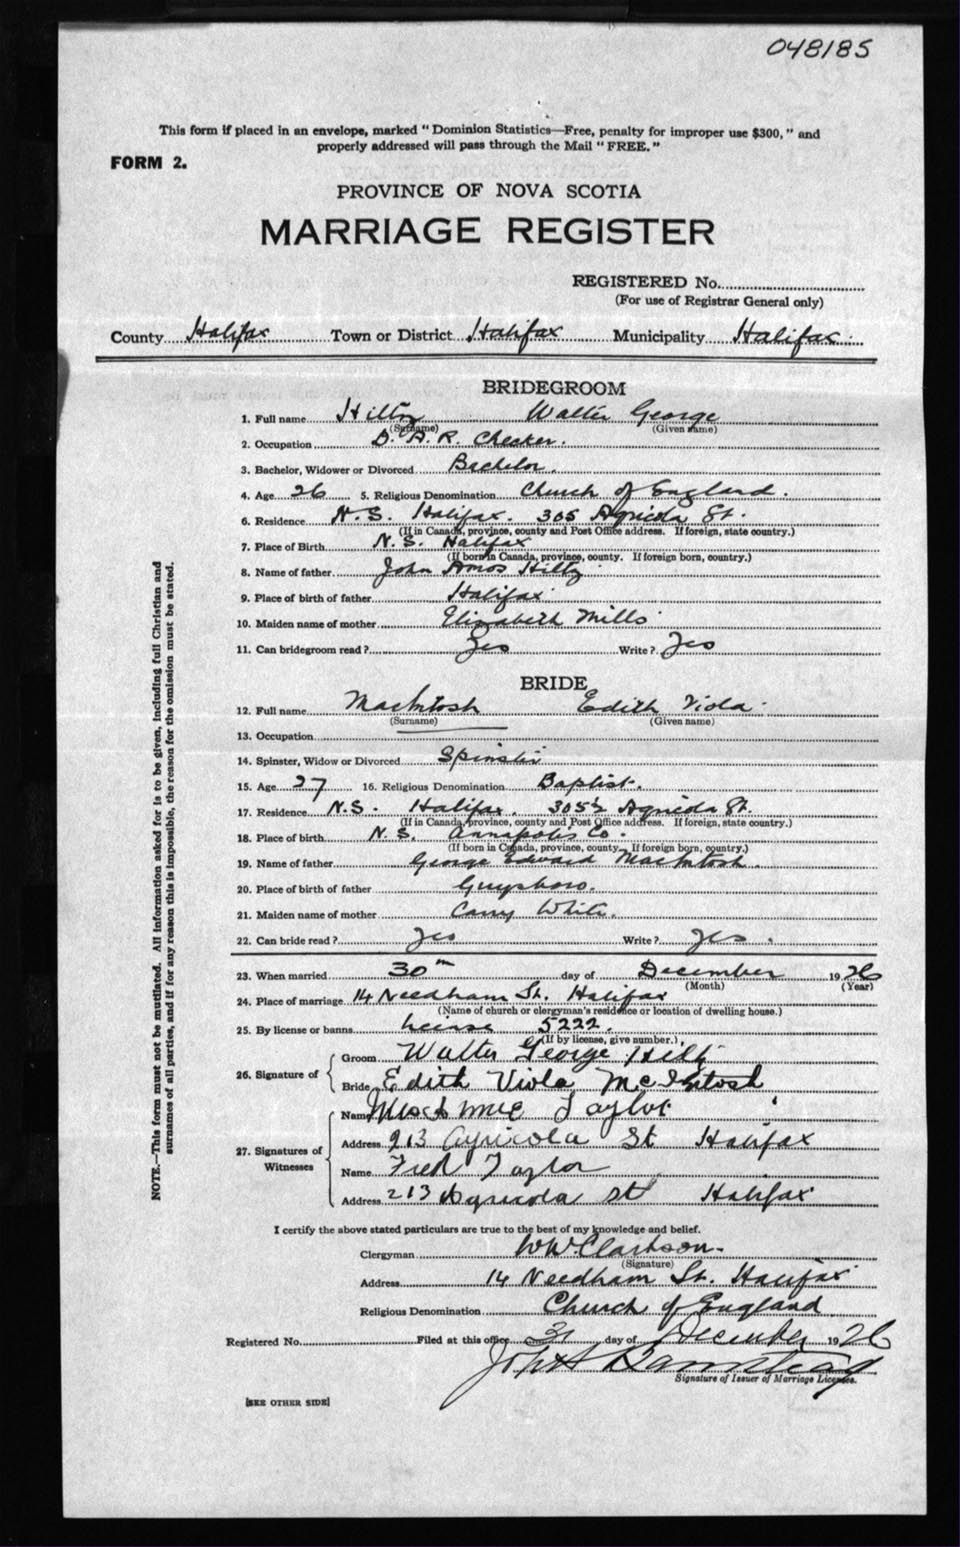 048185
This form if placed in an envelope, marked "Dominion Statistics—Free, penalty for improper use $300," and
properly addressed will pass through the Mail "FREE."
FORM 2.
PROVINCE OF NOVA SCOTIA
MARRIAGE REGISTER
REGISTERED No.
(For use of Registrar General only)
County Halifax Town or District Halifax Municipality Halifax
BRIDEGROOM
1. Full name Hiltz Walter George
(Surname) (Given name)
2. Occupation D. A. R. Checker.
3. Bachelor, Widower or Divorced Bachelor.
4. Age 26 5. Religious Denomination Church of England.
6. Residence N.S. Halifax. 305 Agricola St.
(If in Canada, province, county and Post Office address. If foreign, state country.)
7. Place of Birth N.S. Halifax
(If born in Canada, province, county. If foreign born, country.)
8. Name of father John Amos Hiltz
9. Place of birth of father Halifax
10. Maiden name of mother Elizabeth Mills
11. Can bridegroom read? Yes Write? Yes
BRIDE
12. Full name MacIntosh Edith Viola
(Surname) (Given name)
13. Occupation
14. Spinster, Widow or Divorced Spinster
15. Age 27 16. Religious Denomination Baptist.
17. Residence N.S. Halifax. 305½ Agricola St.
(If in Canada, province, county and Post Office address. If foreign, state country.)
18. Place of birth N.S. Annapolis Co.
(If born in Canada, province, county. If foreign born, country.)
19. Name of father George Edward MacIntosh.
20. Place of birth of father Guysboro.
21. Maiden name of mother Carry White.
22. Can bride read? Yes Write? Yes.
23. When married 30th day of December 1926
(Month) (Year)
24. Place of marriage 14 Needham St. Halifax
(Name of church or clergyman's residence or location of dwelling house.)
25. By license or banns License 5222.
(If by license, give number.)
26. Signature of
Groom Walter George Hiltz
Bride Edith Viola McIntosh
27. Signatures of Witnesses
Name Taylor
Address 213 Agricola St Halifax
Name Fred Taylor
Address 213 Agricola St Halifax
I certify the above stated particulars are true to the best of my knowledge and belief.
Clergyman W W Clarkson.
(Signature)
Address 14 Needham St. Halifax
Religious Denomination Church of England
Registered No. Filed at this office 31 day of December 1926
John Barnstead
Signature of Issuer of Marriage Licenses.
[SEE OTHER SIDE]
NOTE.—This form must not be mutilated. All information asked for is to be given, including full Christian and
surnames of all parties, and if for any reason this is impossible, the reason for the omission must be stated.